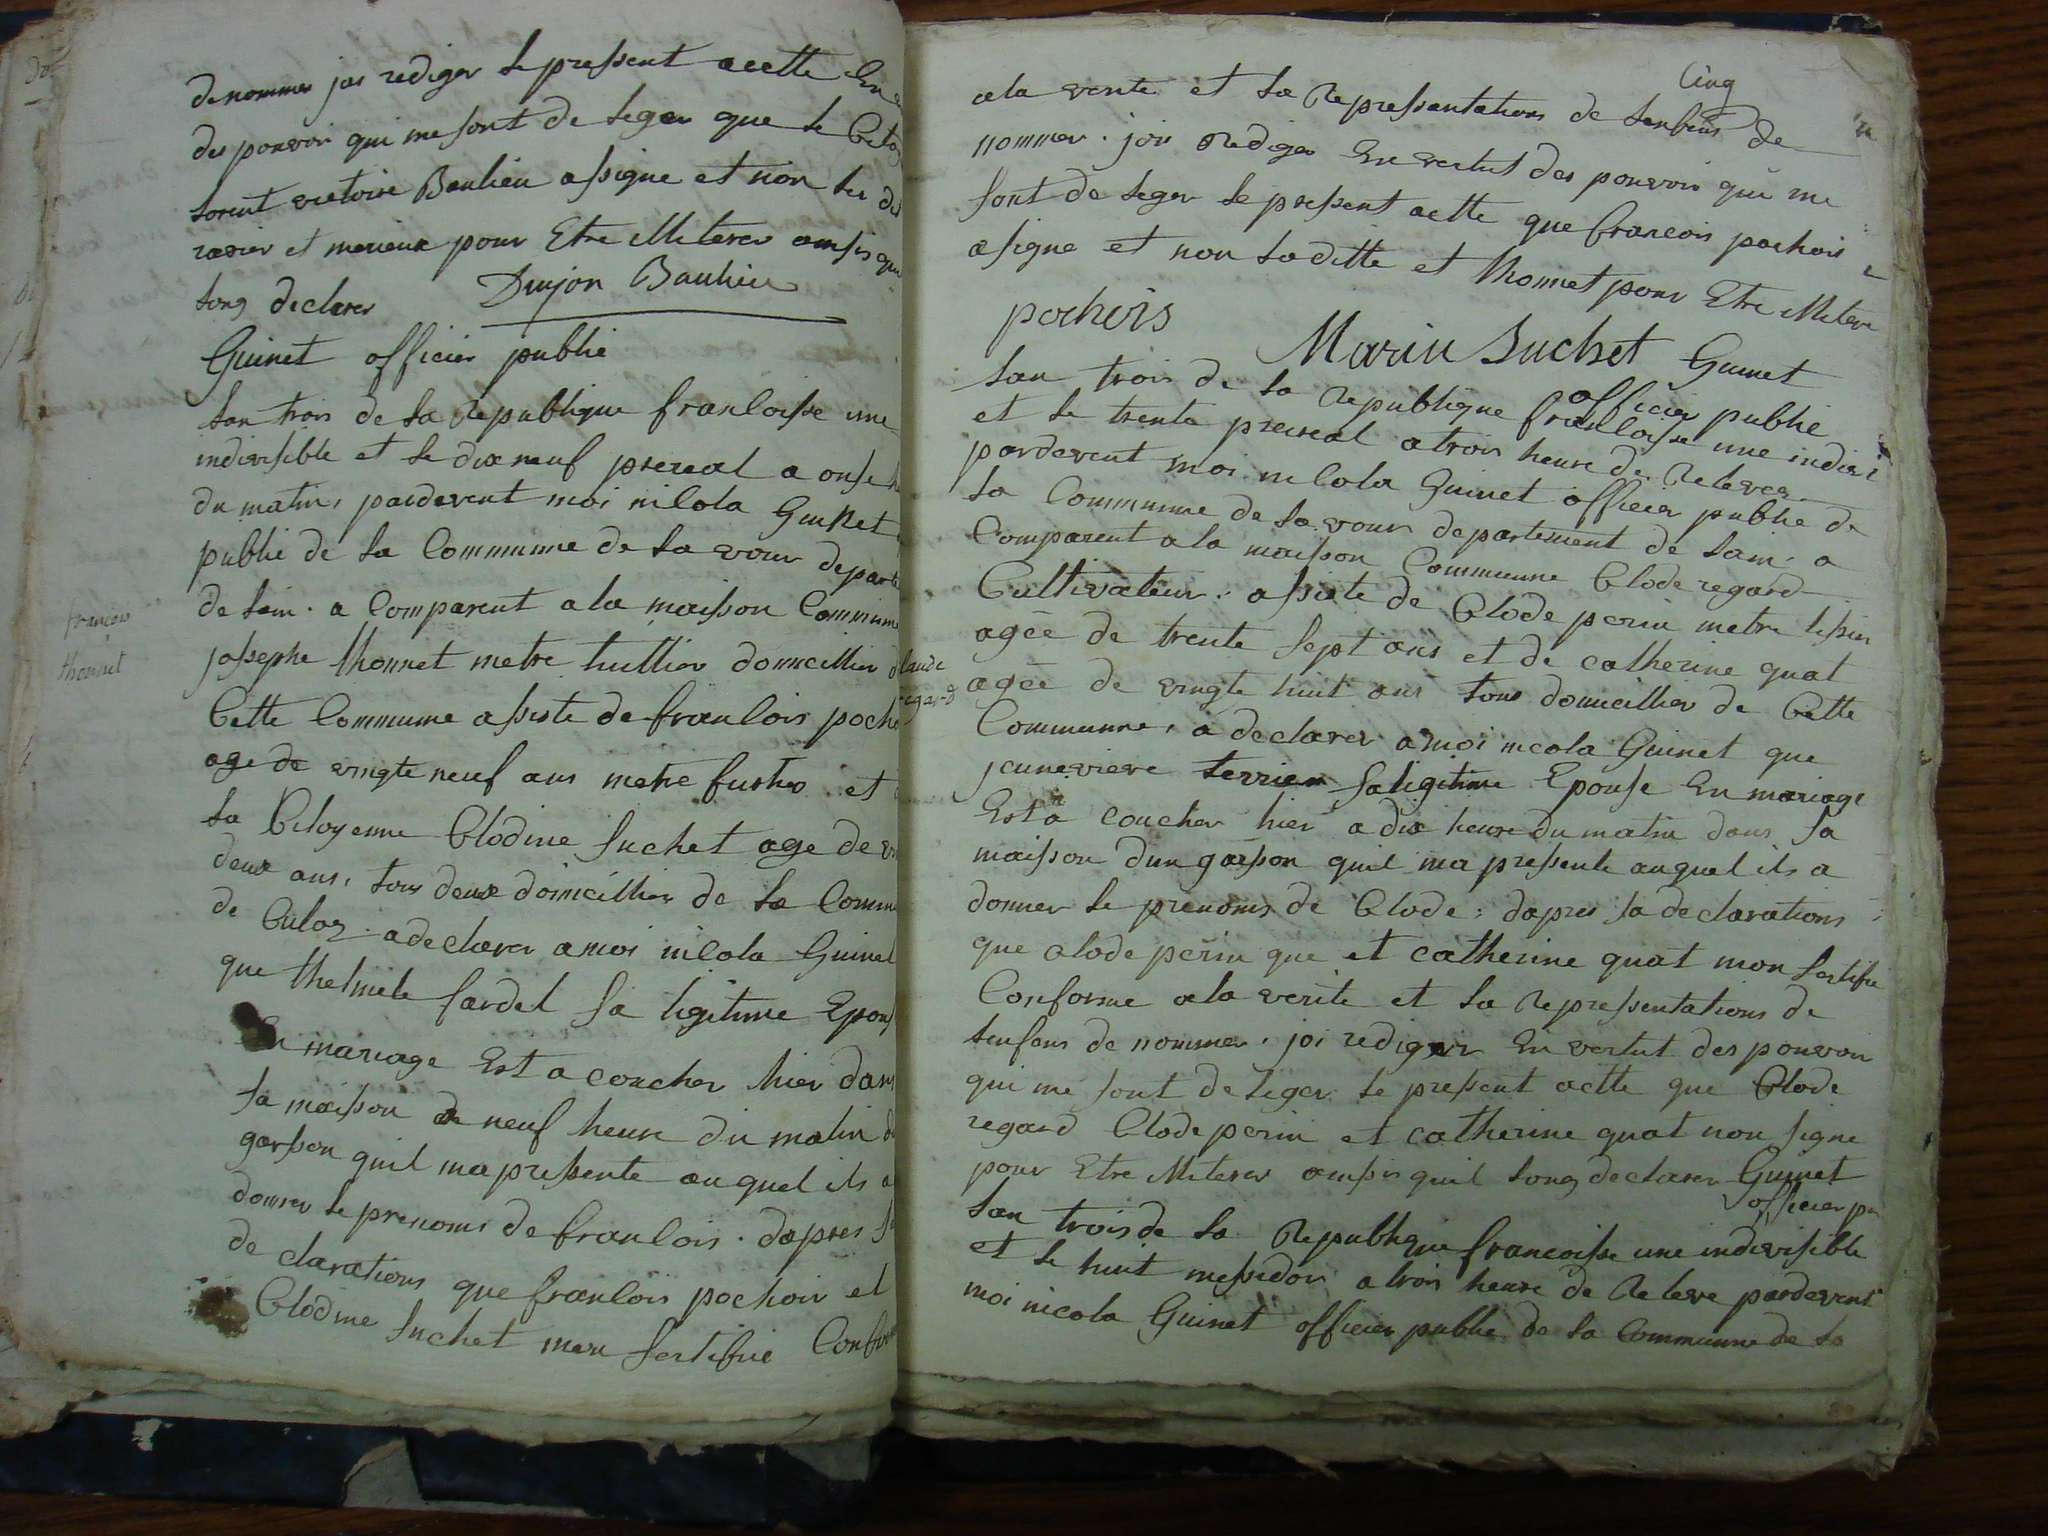 denommer jai rediger le pressent actte En
des pouvoir qui me sont de leger que le Citoy
lorent victoire Baulieu a signe et non les di
ravier et merieux pour Etre Miterer ainsis qui
long declarer Dujon Baulieu
Guinet officier publie
lan trois de la Republique franloisse une
indivisible et le dix neuf prereal a onse h
du matin, pardevent moi nilola Guinet
publie de la Commune de la vour departe
de lain. a Comparent a la maisson Commune
josephe thonnet metre tuillier domicillier d
Cette Commune assiste de franlois poche
age de vingte neuf ans metre fustier et d
la Citoyenne Clodine suchet age de vi
deux ans, tous deux domicillier de la Comm
de Culoz. a declarer a moi nilola Guinet
que thelmele sardel sa ligitime Epous
En mariage Est a coucher hier dans
sa maisson a neuf heure du matin d
garson quil ma pressente auquel ils a
donner le prenoms de franlois. dapres la
de clarations que franlois pochoir et
Clodine suchet mon sertifié Confor
francois
thonnet
Cinq
a la verite et la Repressentations de lenfens de
nommer. jai Rediger En vertut des pouvoir qui me
sont de leger le pressent actte que francois pochois
a signe et non la ditte et thonnet pour Etre Miterer
pochois Marin Suchet Guinet
officier publie
lan trois de la Republique franloisse une indivi
et le trente prereal a trois heure de Relever
pardevent moi nilola Guinet officier publie de
la Commune de la vour departement de lain. a
Comparent a la maisson Commune Clode regard
Cultivateur. assiste de Clode perin metre tissier
agée de trente sept ans et de catherine quat
agée de vingte huit ans tous domicillier de Cette
Commune, a declarer a moi nicola Guinet que
jenevieve terrier sa ligitime Epouse En mariage
Est a coucher hier a dix heure du matin dans sa
maisson dun garson quil ma pressente auquel ils a
donner le prenoms de Clode: dapres la declarations
que clode perin que et catherine quat mon sertifie
Conforme a la verite et la Repressentations de
lenfens de nommer, jai rediger En vertut des pouvoir
qui me sont de leger le pressent actte que Clode
regard Clode perin et catherine quat non signe
pour Etre Miterer ainsis quil long declarer Guinet
officier pu
lan trois de la Republique francoisse une indivisible
et le huit messidor a trois heure de Releve pardevent
moi nicola Guinet officier publie de la Commune de la
claude
regard